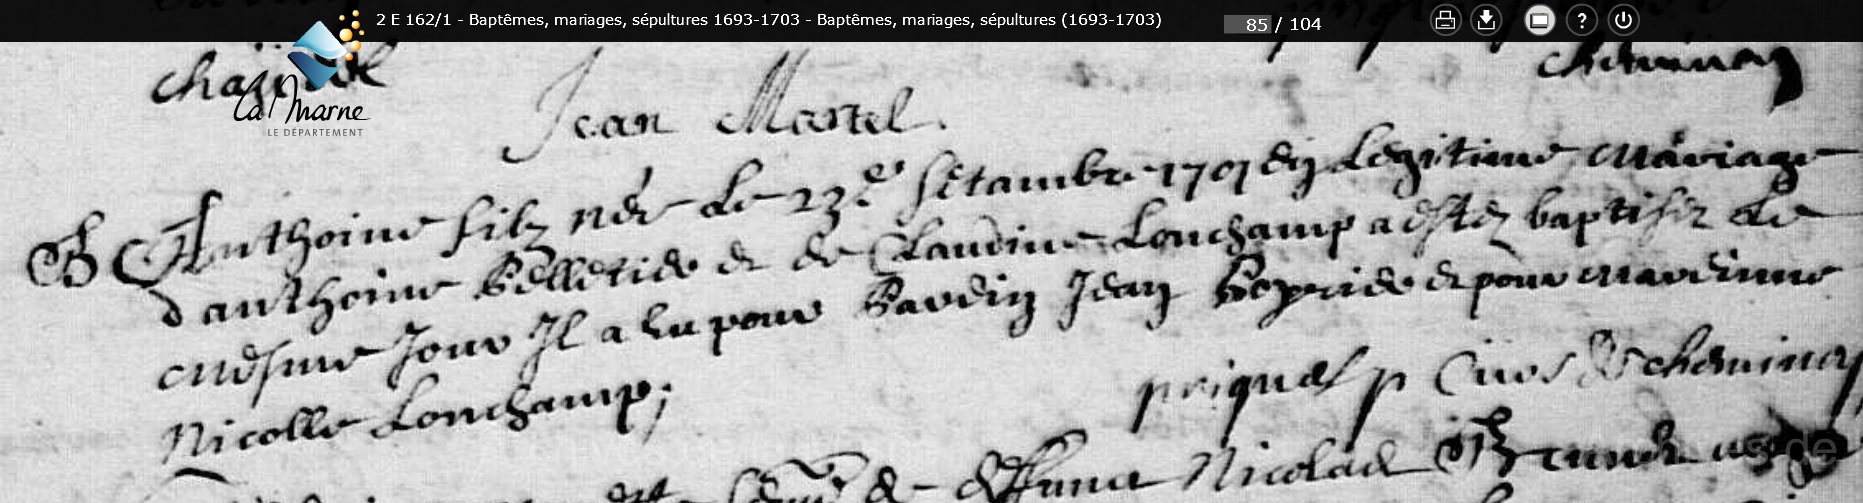 2 E 162/1 - Baptêmes, mariages, sépultures 1693-1703 - Baptêmes, mariages, sépultures (1693-1703) 85 / 104
La Marne
LE DÉPARTEMENT
Jean Martel
B Anthoine filz nez Le 23e setambre 1701 du Legitime mariage
d'anthoine Pelletier et de Claudine Lonchamp a estez baptisez Le
mesme Jour Il a eu pour Pardin Jean et pour mardinne
Nicolle Lonchamp;
priquel p Cures de cheminon
de deffunct Nicolas